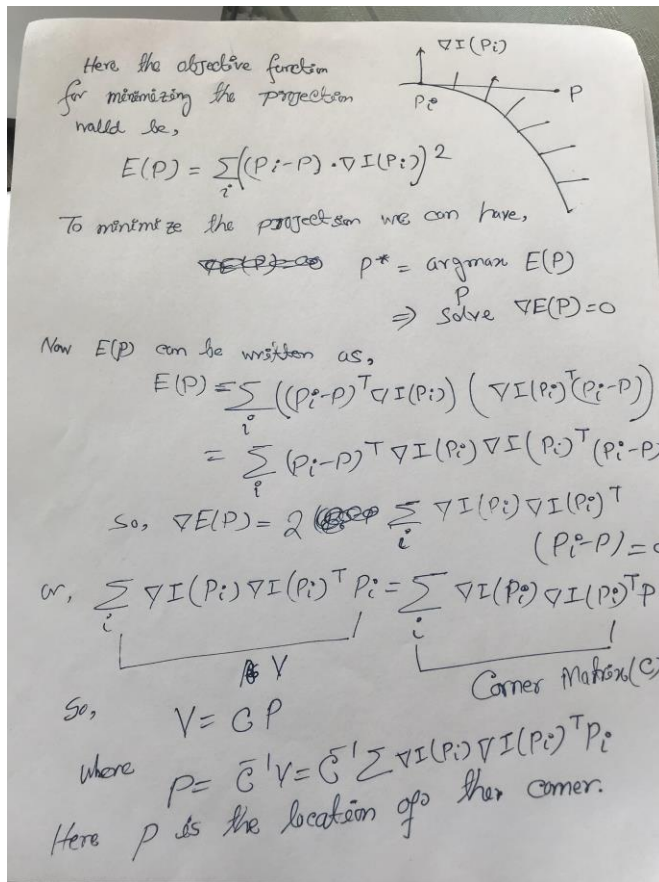 Here the objective function
for minimizing the projection
walld be,
∇I(Pi)
Pi
P
E(P) = Σi((Pi-P)·∇I(Pi))2
To minimize the projection we can have,
P* = argmax E(P)
P
⇒ solve ∇E(P)=0
Now E(P) can be written as,
E(P) = Σi ((Pi-P)^T ∇I(Pi)) (∇I(Pi)^T(Pi-P))
= Σi (Pi-P)^T ∇I(Pi) ∇I(Pi)^T (Pi-P)
So, ∇E(P) = 2 Σi ∇I(Pi) ∇I(Pi)^T
(Pi-P)=0
or, Σi ∇I(Pi) ∇I(Pi)^T Pi = Σi ∇I(Pi) ∇I(Pi)^T P
V
Corner Matrix(C)
So,
V = C P
where
P = C^-1 V = C^-1 Σ ∇I(Pi) ∇I(Pi)^T Pi
Here P is the location of the corner.